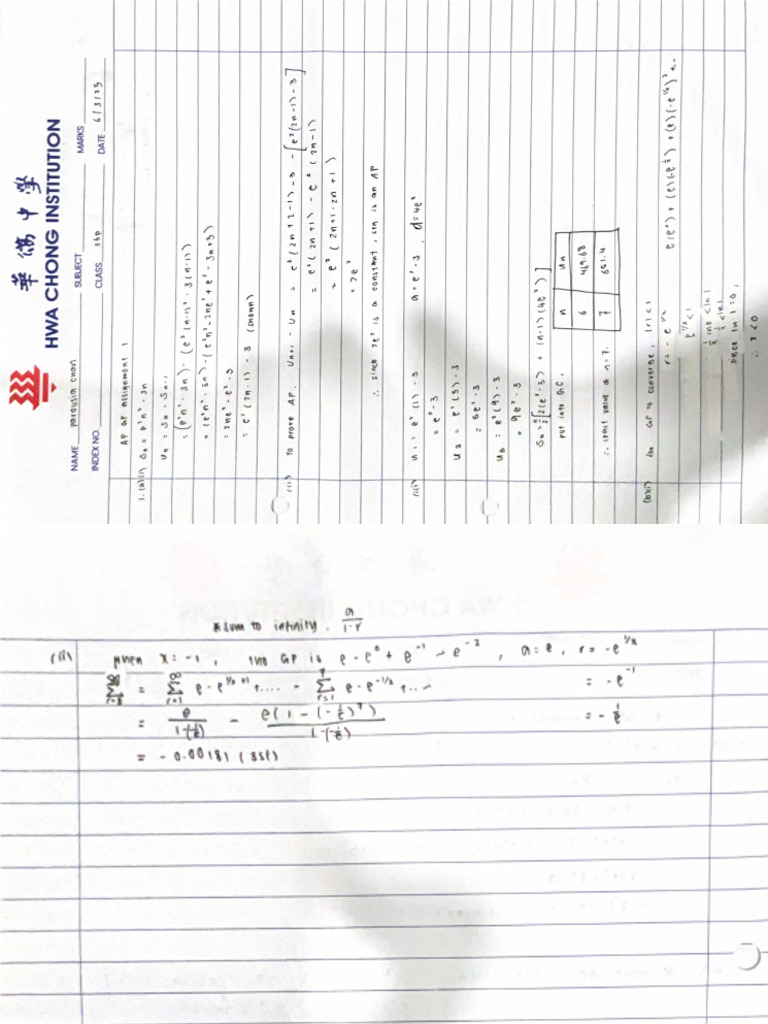 華僑中学
HWA CHONG INSTITUTION
NAME parousia chan SUBJECT MARKS
INDEX NO. CLASS 26p DATE 6/3/25
AP GP assignment 1
1.(a)(i) Sn = e²n² - 3n
un = Sn - Sn-1
= (e²n² - 3n) - (e²(n-1)² - 3(n-1))
= (e²n² - 3n) - (e²n² - 2ne² + e² - 3n + 3)
= 2ne² - e² - 3
= e²(2n-1) - 3 (shown)
(ii) To prove AP, Un+1 - Un = e²(2n+2-1) - 3 - [e²(2n-1) - 3]
= e²(2n+1) - e²(2n-1)
= e²(2n+1-2n+1)
= 2e²
∴ since 2e² is a constant, is an AP
(iii) u1 = e²(1) - 3 a = e² - 3 , d = 4e²
= e² - 3
u3 = e²(5) - 3
= 5e² - 3
u5 = e²(9) - 3
= 9e² - 3
Sn = n/2 [2(e² - 3) + (n-1)(4e²)]
put into GC,
n un
6 469.68
7 651.4
∴ least value of n = 7.
for GP to converge, |r| < 1
r = - e^1/x
e^1/x < 1
1/x ln e < ln 1
1/x < ln 1
since ln 1 = 0,
∴ x < 0
sum to infinity = a/1-r
(ii) when x = -1, the GP is e - e⁰ + e⁻¹ - e⁻² , a = e, r = -e^1/x
= -e⁻¹
= - 1/e
= e/1-(-1/e) - e(1 - (-1/e)⁷)/1-(-1/e)
= - 0.00181 (3sf)